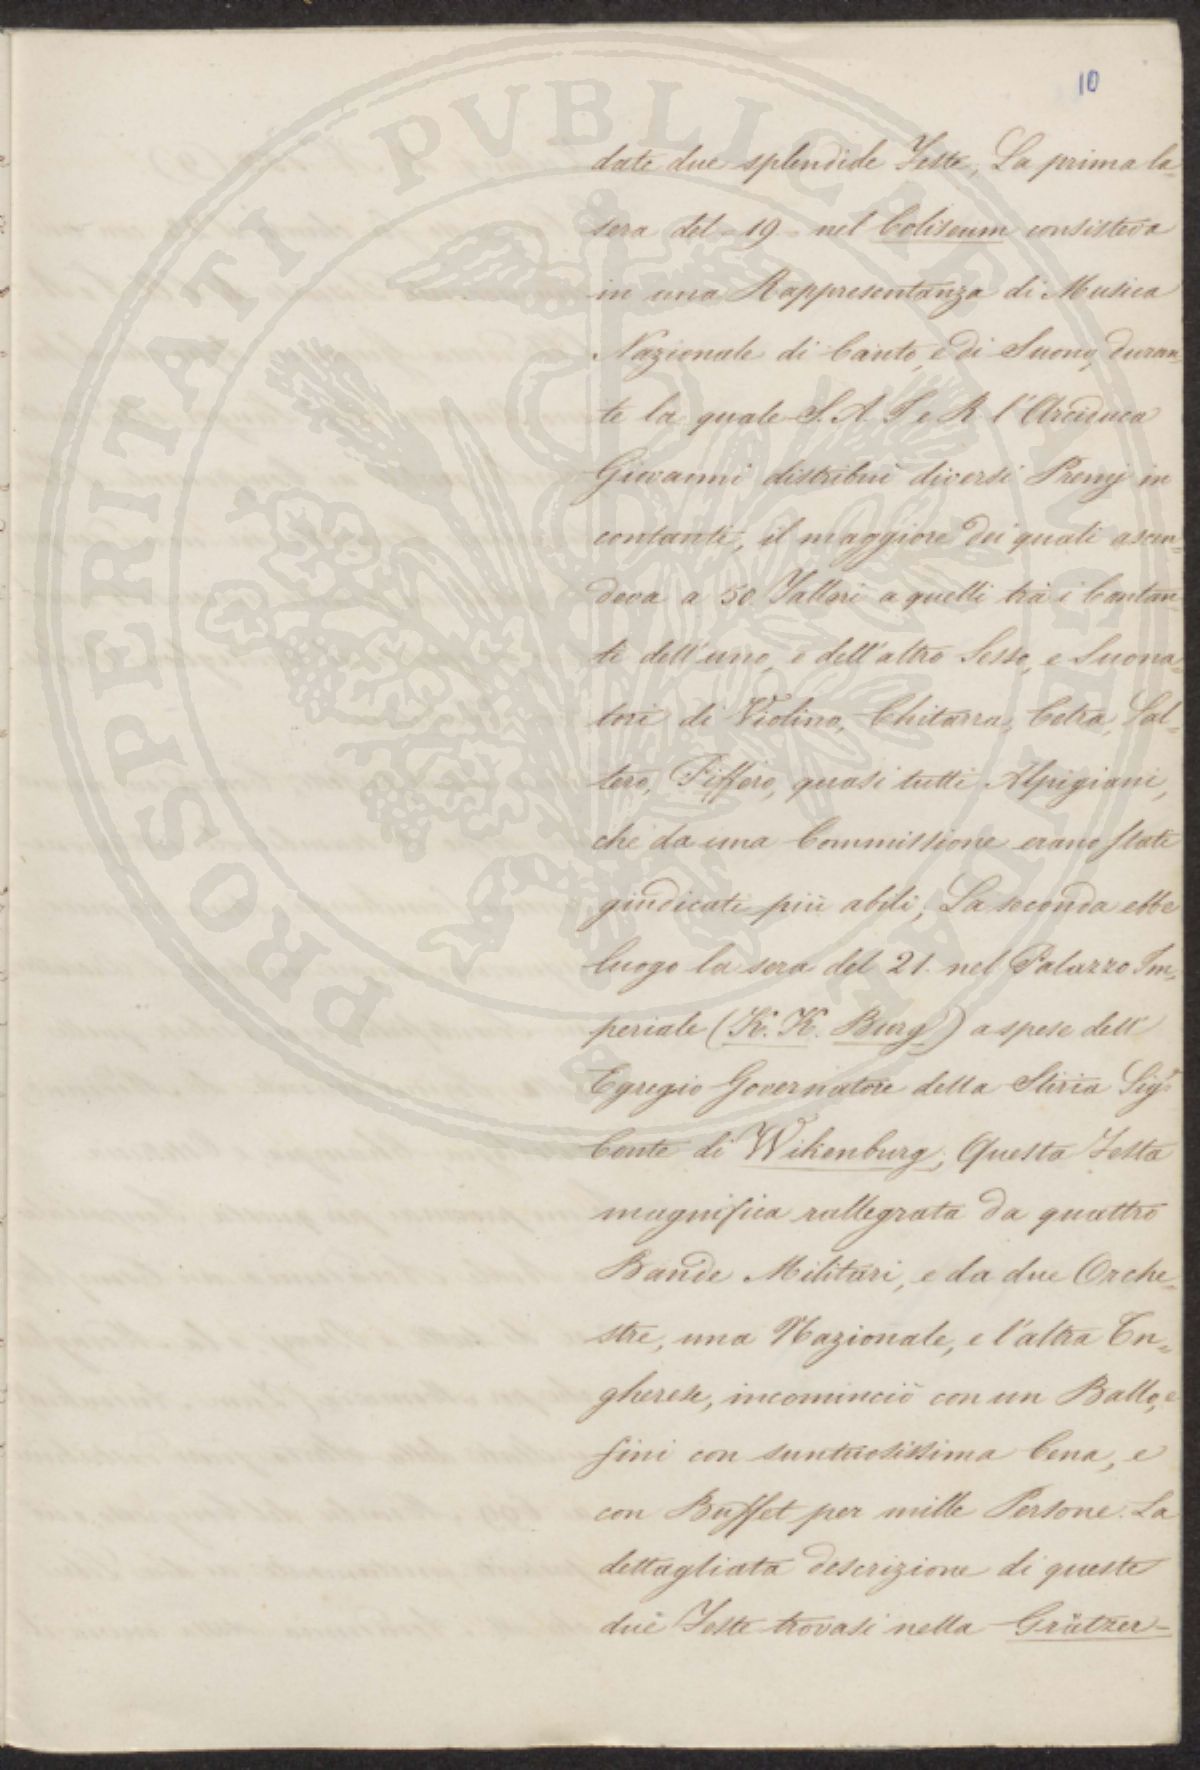 10
date due splendide Feste, La prima la=
sera del 19 nel Coliseum consisteva
in una Rappresentanza di Musica
Nazionale di Canto, e di Suono, duran=
te la quale S. A. I e R. l'Arciduca
Giovanni distribui diversi Premj in
contanti, il maggiore dei quali ascen=
deva a 50 Talleri a quelli tra i Cantan=
ti dell'uno, e dell'altro Sesso, e Suona=
tori di Violino, Chitarra, Cetra, Sal=
tero, Piffero, quasi tutti Alpigiani,
che da una Commissione erano stati
giudicati più abili; La seconda ebbe
luogo la sera del 21. nel Palazzo Im=
periale (K. K. Burg) a spese dell'
Egregio Governatore della Stiria Sigr
Conte di Wikenburg; Questa Festa
magnifica rallegrata da quattro
Bande Militari, e da due Orche=
stre, una Nazionale, e l'altra Un=
gherese, incominciò con un Ballo, e
finì con suntuosissima Cena, e
con Buffet per mille Persone. La
dettagliata descrizione di queste
due Feste trovasi nella Grätzer=
PROSPERITATI PUBLICAE AUGENDAE